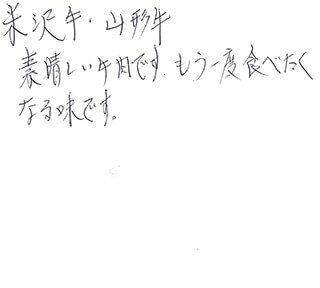 米沢牛・山形牛
素晴しい牛肉です、もう一度食べたく
なる味です。